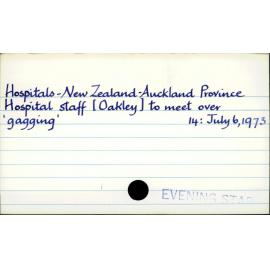 Hospitals-New Zealand-Auckland Province
Hospital staff [Oakley] to meet over
'gagging' 14: July 6, 1973
EVENING STAR